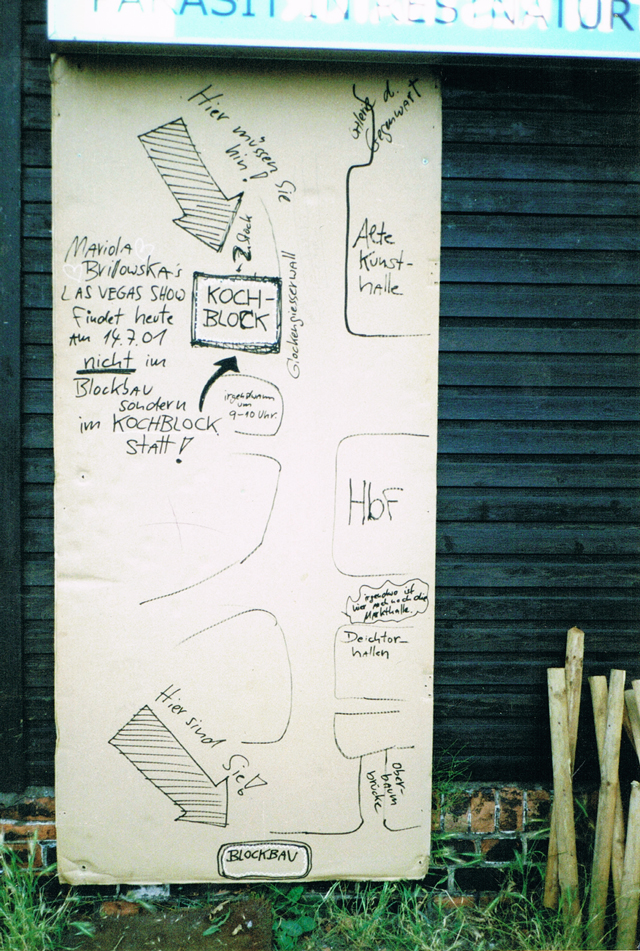 PARASIT
NATUR
Hier müssen Sie
hin!
2. Stock
Galerie d.
Gegenwart
Alte
Kunst-
halle
Mariola
Brillowska's
LAS VEGAS SHOW
findet heute
Am 14.7.01
nicht im
Blockbau
sondern
im KOCHBLOCK
statt!
KOCH-
BLOCK
Glockengiesserwall
irgendwann
um
9-10 Uhr.
HbF
irgendwo ist
hier auch noch die
Markthalle.
Deichtor-
hallen
Hier sind Sie!
ober-
baum
brücke
BLOCKBAU